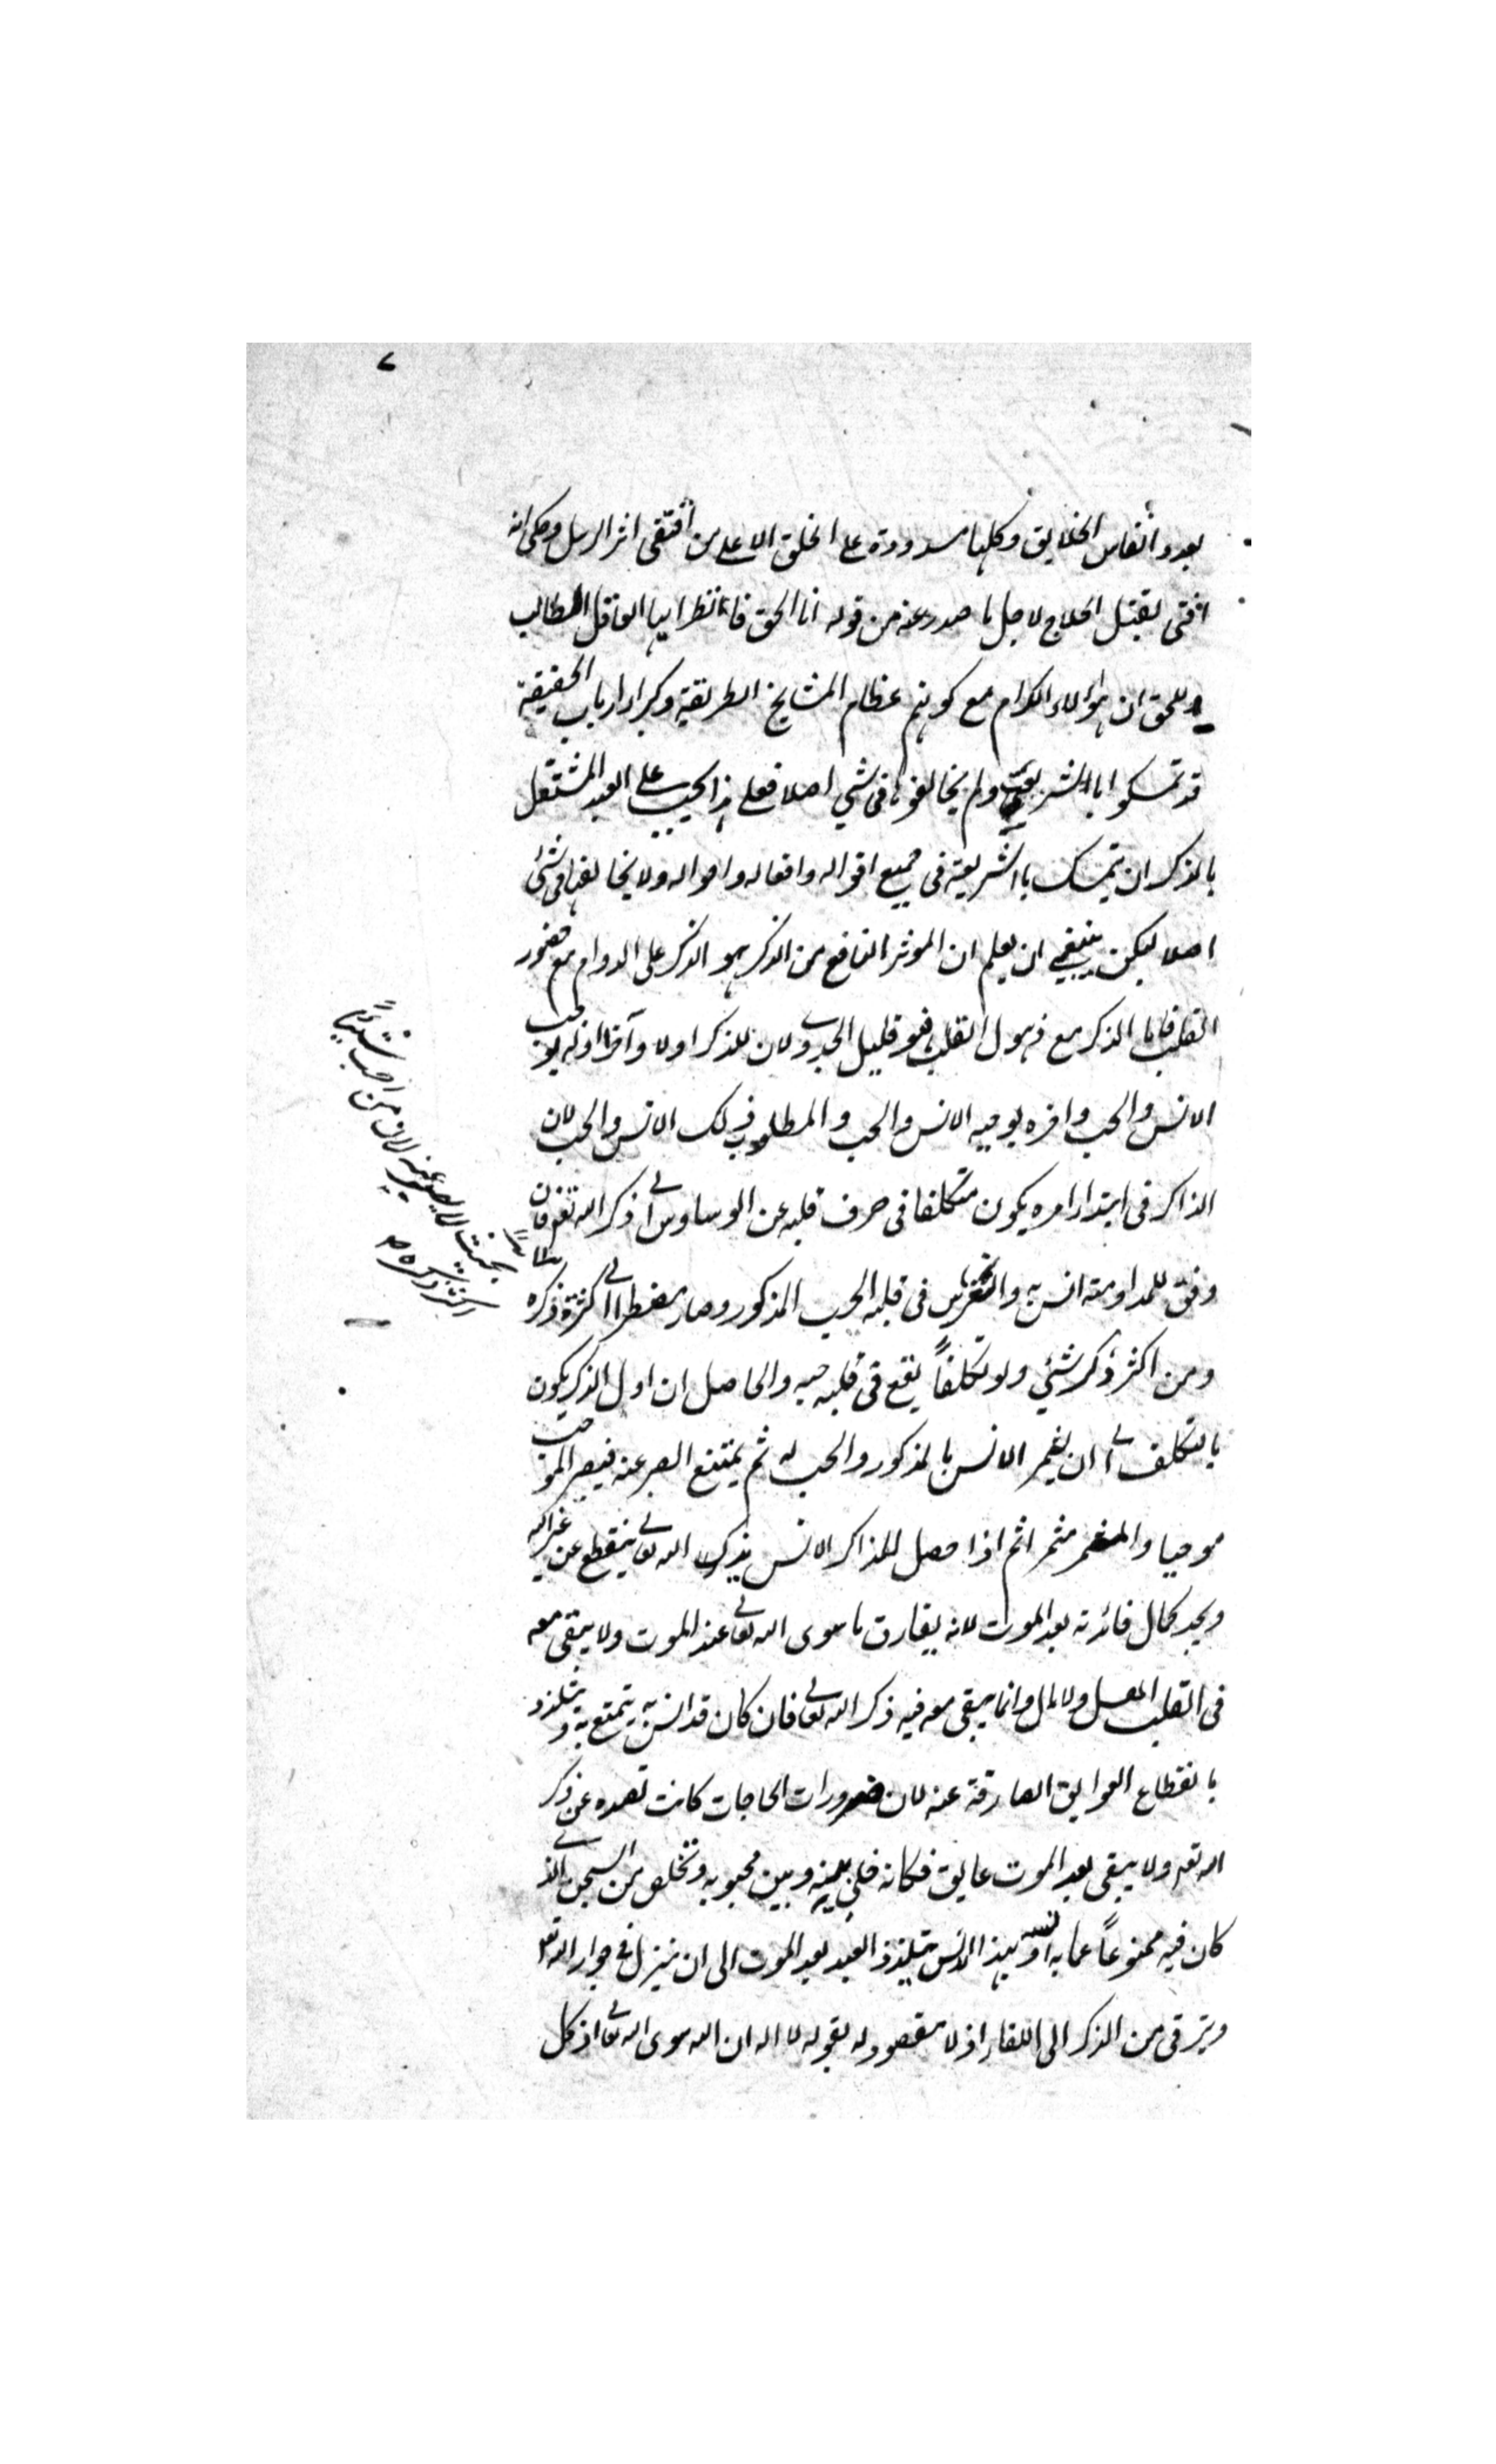 بعدد انفاس الخلايق وكلها مسدودة على الخلق الا على من اقتفى اثر الرسل وحكى انه
افتى بقتل الحلاج لاجل ما صدر عنه من قوله انا الحق فانظر ايها العاقل الطالب
للحق ان هؤلاء الكرام مع كونهم عظام المشايخ الطريقة وكبراء ارباب الحقيقة
قد تمسكوا باالشريعة ولم يخالفوها فى شي اصلا فعلى هذا يجب على العبد المشتغل
بالذكر ان يتمسك باالشريعة فى جميع اقواله وافعاله واحواله ولا يخالفها فى شئ
اصلا ليكن ينبغي ان يعلم ان الموثر النافع من الذكر هو الذكر على الدوام مع حضور
القلب فاما الذكر مع ذهول القلب فهو قليل الجدوى لان للذكر اولا وآخرا اوله يوجب
الانس والحب واخره يوجبه الانس والحب والمطلوب ذلك الانس والحب لان
الذاكر فى ابتداء امره يكون متكلفا فى صرف قلبه عن الوساوس الى ذكر الله تعم فان
وفق للمداومة انس به وانغرس فى قلبه الحب المذكور وصار مضطرا الى كثرة ذكره
ومن اكثر ذكر شئي ولو تكلفاً يقع فى قلبه حبه والحاصل ان اول الذكر يكون
بالتكلف الى ان يثمر الانس بالمذكور والحب له ثم يمتنع الصبر عنه فيصير الموجب
موجبا والمثمر مثمرا ثم اذا حصل للذاكر الانس بذكر الله تعالى ينقطع عن غير الله
ويجد كمال فائدته بعد الموت لانه يفارق ما سوى الله تعالى عند الموت ولا يبقى معه
فى القلب اهل ولا مال وانما يبقى معه فيه ذكر الله تعالى فان كان قد انس به يتمتع به ويتلذذ
بانقطاع العوايق الصارفة عنه لان ضرورات الحاجات كانت تصده عن ذكر
الله تعم ولا يبقى بعد الموت عايق فكانه خلى بينه وبين محبوبه وتخلص من السجن الذى
كان فيه ممنوعاً عما به انسه وبهذا الانس يتلذذ العبد بعد الموت الى ان ينزل فى جوار الله تعم
ويترقى من الذكر الى اللقاء اذ لا مقصود له بقوله لا اله الا الله سوى الله تعالى اذ كل
بحيث لا يصبر عنه لان من احب شيئاً
اكثر ذكره